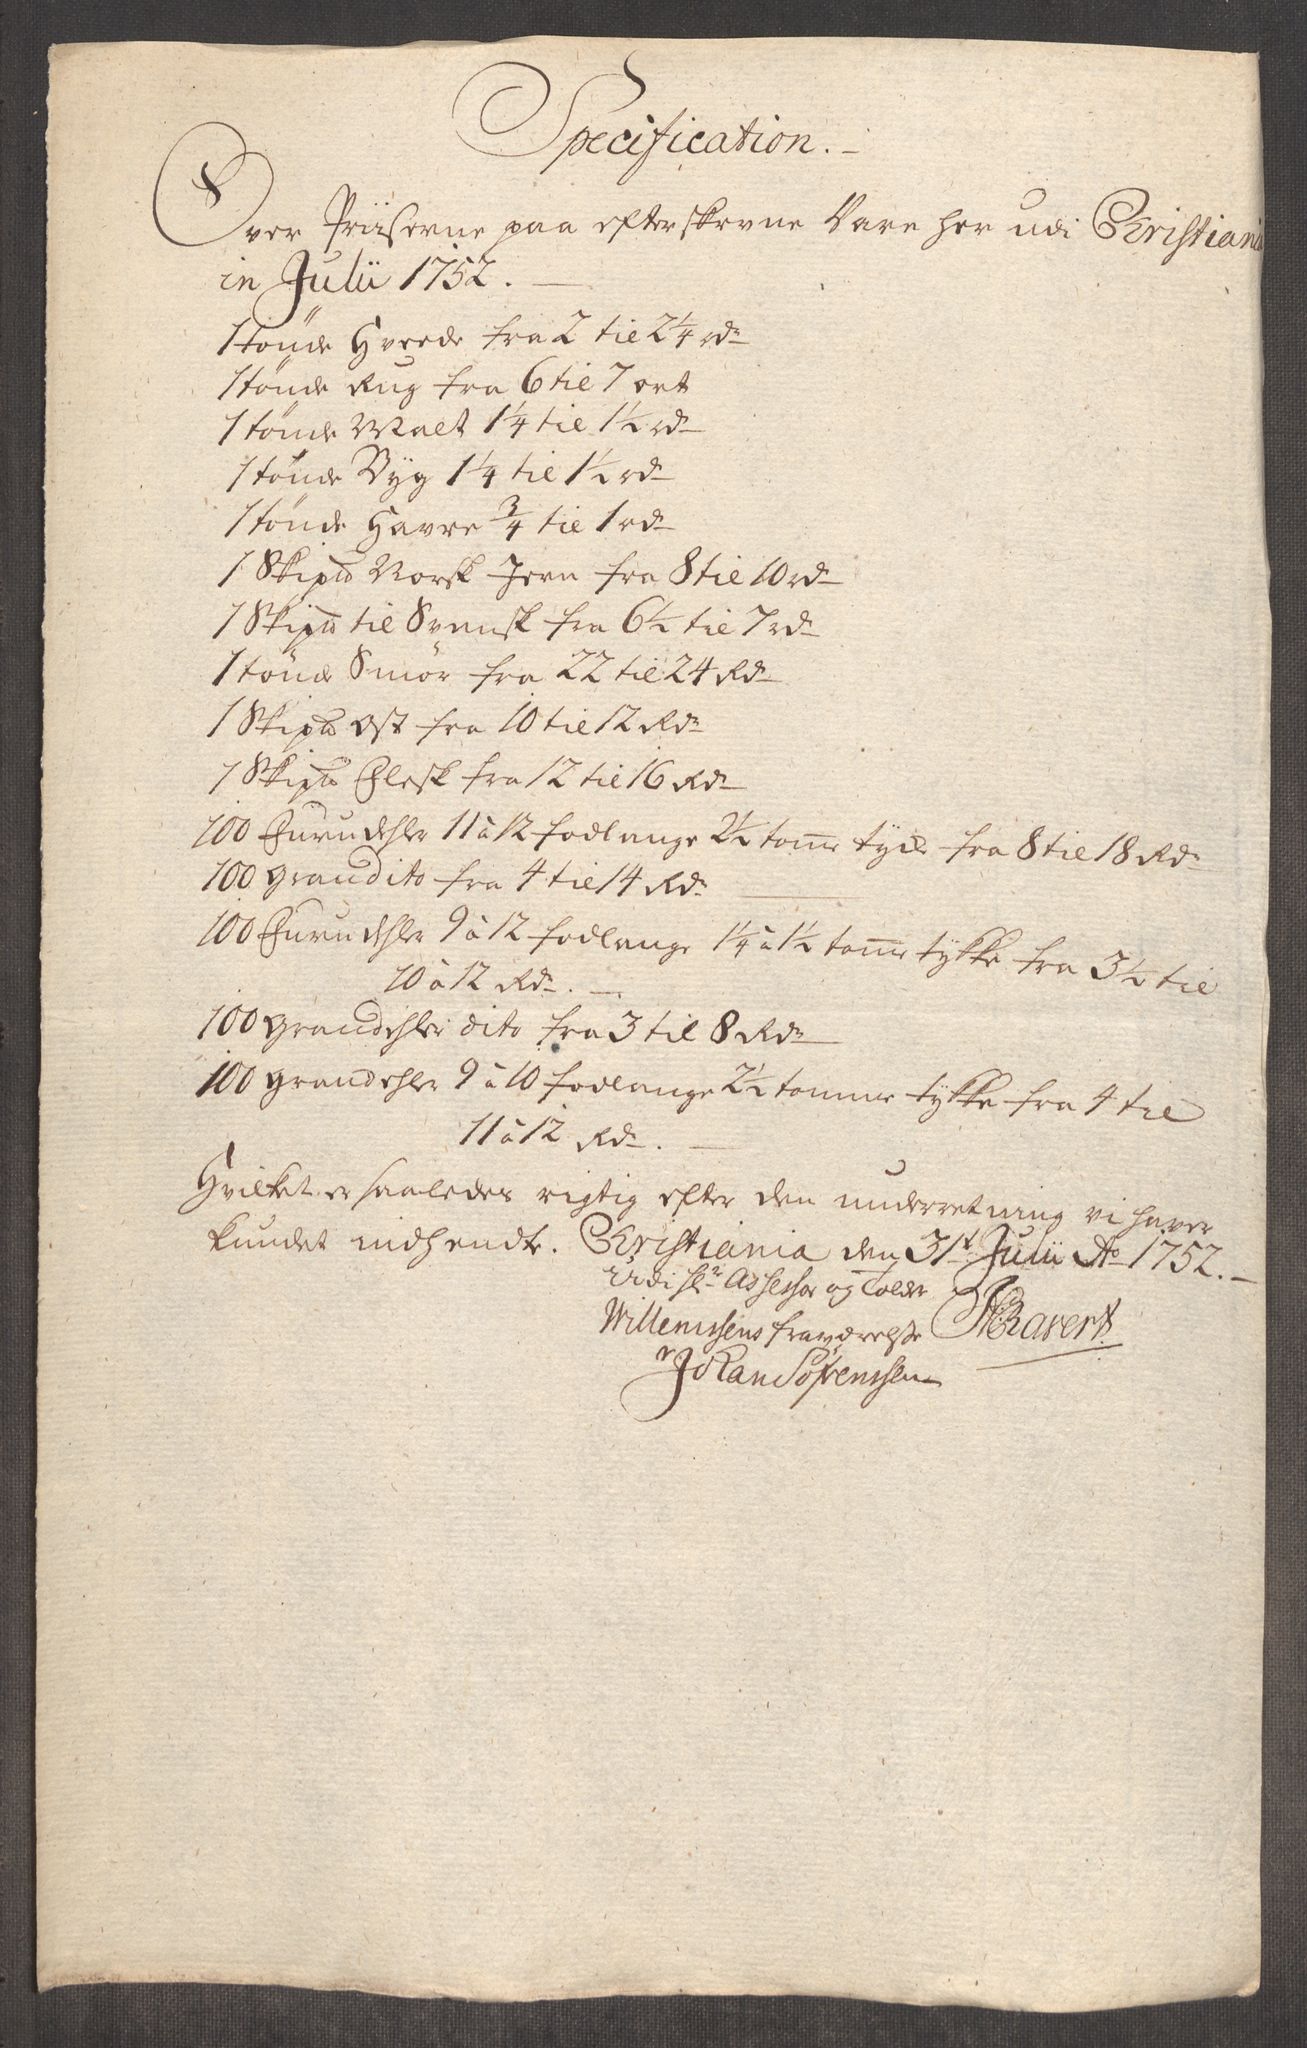 Specification.
Over Priiserne paa efterskrevne Vare her udi Christiania
in Julii 1752.
1 tønde Hveede fra 2 til 2 1/4 rdr
1 tønde Rug fra 6 til 7 ort
1 tønde Malt 1 1/4 til 1 1/2 rdr
1 tønde Byg 1 1/4 til 1 1/2 rdr
1 tønde Havre 3/4 til 1 rdr
1 Skipd Norsk Jern fra 8 til 10 rdr
1 Skipd til Svensk fra 6 1/2 til 7 rdr
1 tønde Smør fra 22 til 24 Rdr
1 Skipd Ost fra 10 til 12 Rdr
1 Skipd Flesk fra 12 til 16 Rdr
100 Furudehler 11 à 12 fod lange 2 1/2 tomme tycke fra 8 til 18 Rdr
100 gran dito fra 4 til 14 Rdr
100 Furudehler 9 à 12 fod lange 1 1/4 à 1 1/2 tomme tykke fra 3 1/2 til
10 à 12 Rdr.
100 grandehler dito fra 3 til 8 Rdr
100 grandehler 9 à 10 fod lange 2 1/2 tomme tykke fra 4 til
11 à 12 Rdr.
Hvilket er saaledes rigtig efter den underretning vi haver
kundet indhendte. Christiania den 31t Julii Ao 1752.
Udi Hr Assessor og Tolder
Willemsens fraværelse Ravert
Johan Sørenssen